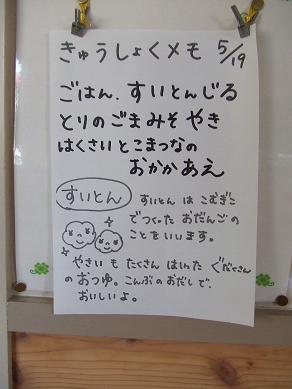 きゅうしょくメモ 5/19
ごはん、すいとんじる
とりのごまみそやき
はくさいとこまつなの
おかかあえ
すいとん
すいとんはこむぎこ
でつくったおだんごの
ことをいいます。
やさいもたくさんはいったぐだくさん
のおつゆ。こんぶのおだしで、
おいしいよ。